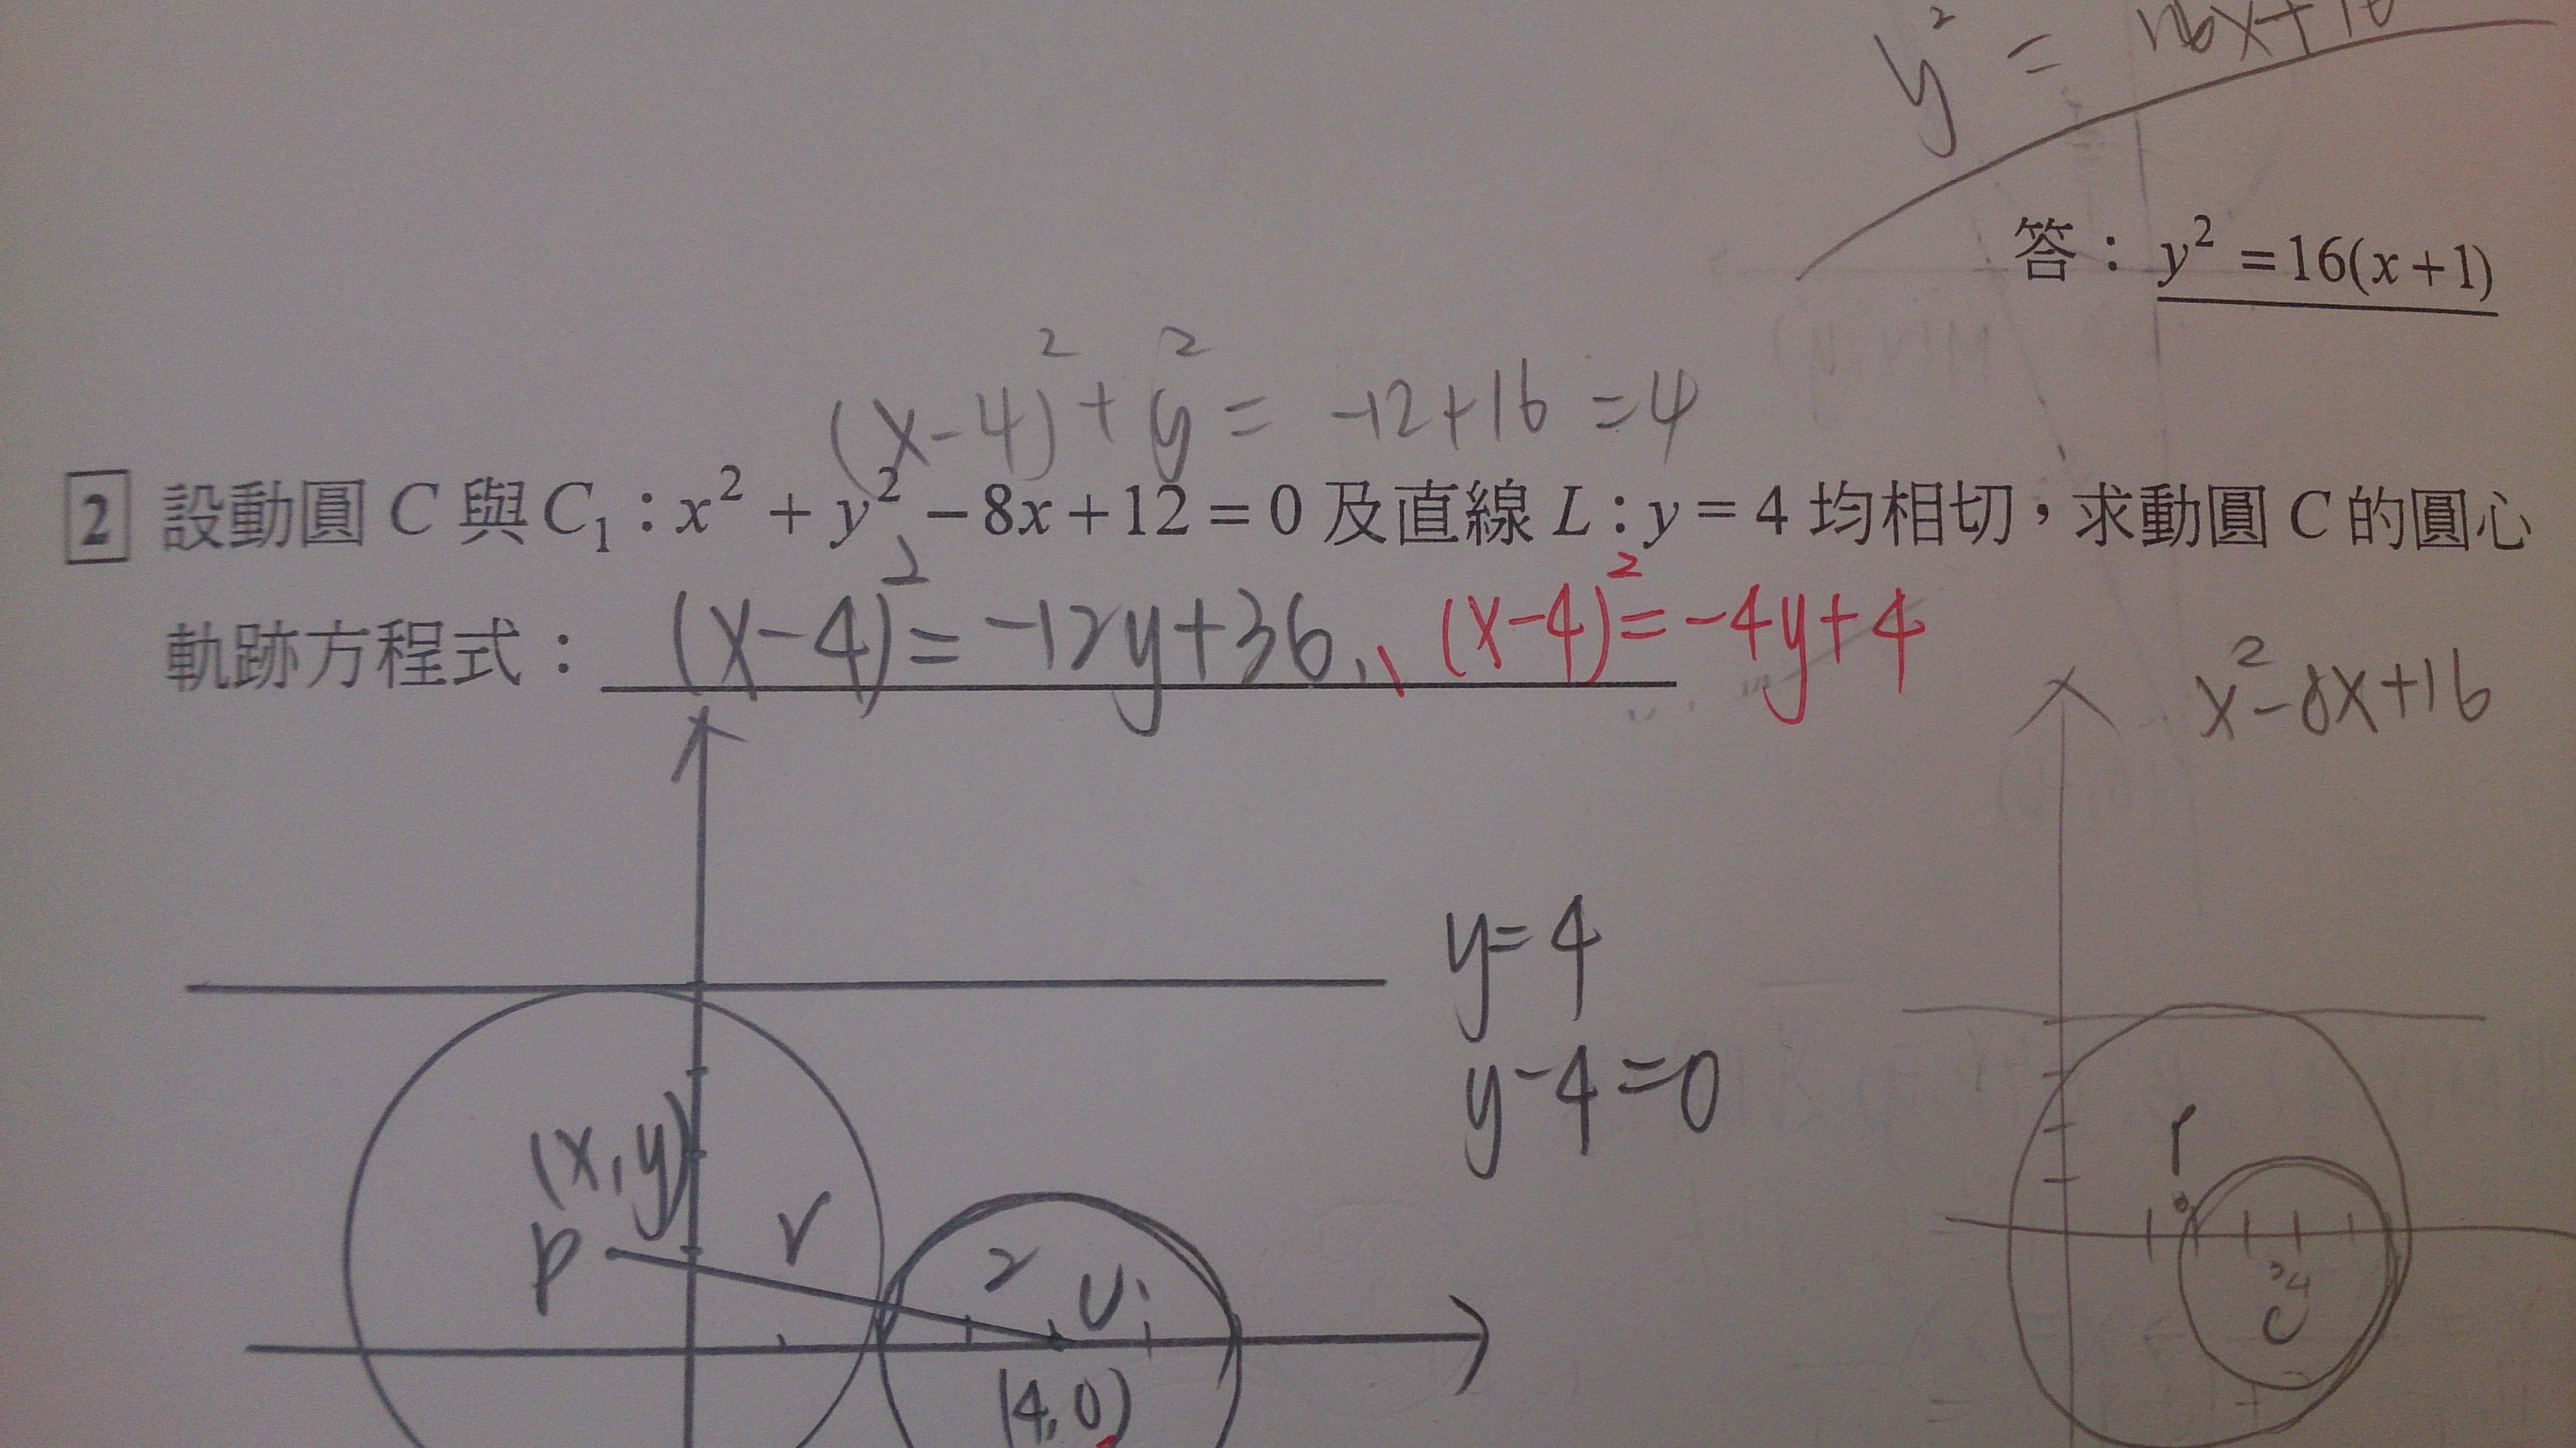 y² = 16x+16
答：y² =16(x+1)
(x-4)²+y²= -12+16 =4
2 設動圓 C 與 C₁：x² + y² − 8x + 12 = 0 及直線 L：y = 4 均相切，求動圓 C 的圓心
軌跡方程式：(x-4)²=-12y+36、(x-4)²=-4y+4
x²-8x+16
y=4
y-4=0
(x,y)
P
r
2
(4,0)